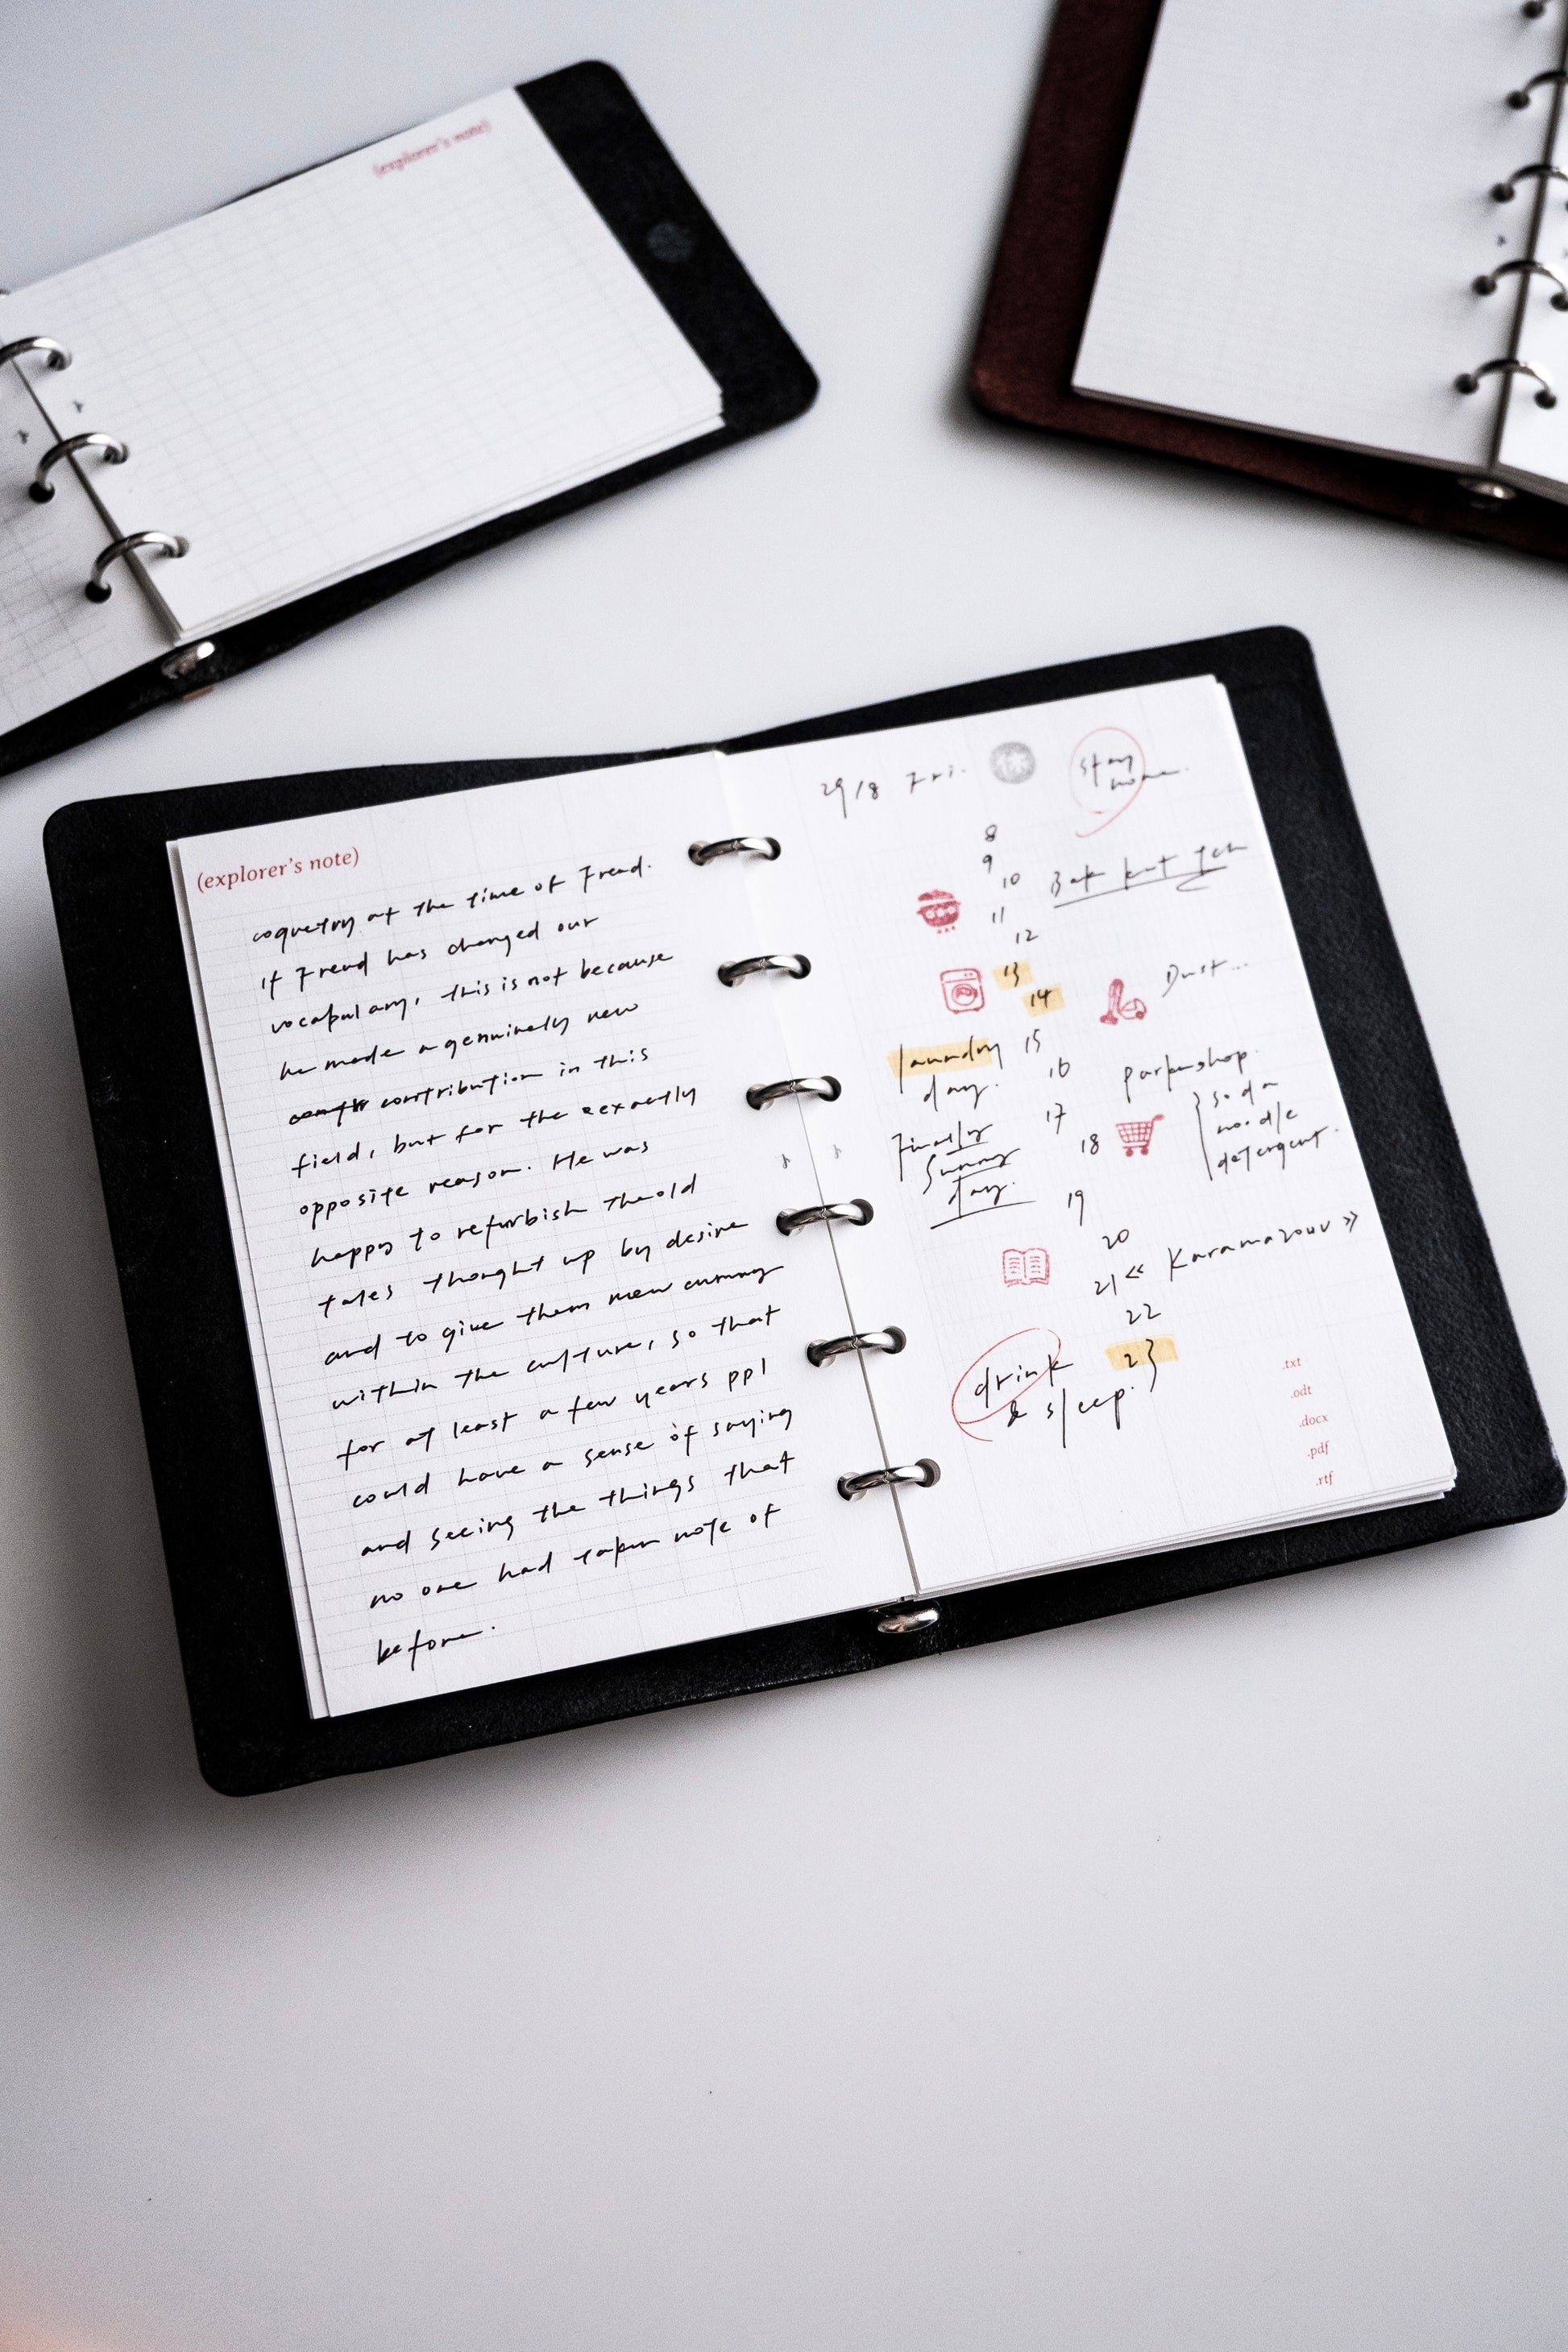 (explorer's note)
(explorer's note)
coquetry at the time of Freud.
If Freud has changed our
vocabulary, this is not because
he made a genuinely new
contribution in this
field, but for the exactly
opposite reason. He was
happy to refurbish the old
tales thought up by desire
and to give them new cunning
within the culture, so that
for at least a few years ppl
could have a sense of saying
and seeing the things that
no one had taken note of
before.
29/8 Fri. 休 stay home.
8
9
10 Bak kut teh
11
12
13
14 Dust...
laundry 15
day. 16 parknshop.
17 soda
Finally 18 noodle
sunny detergent.
day. 19
20
21 《Karamazouv》
22
drink 23
& sleep.
.txt
.odt
.docx
.pdf
.rtf